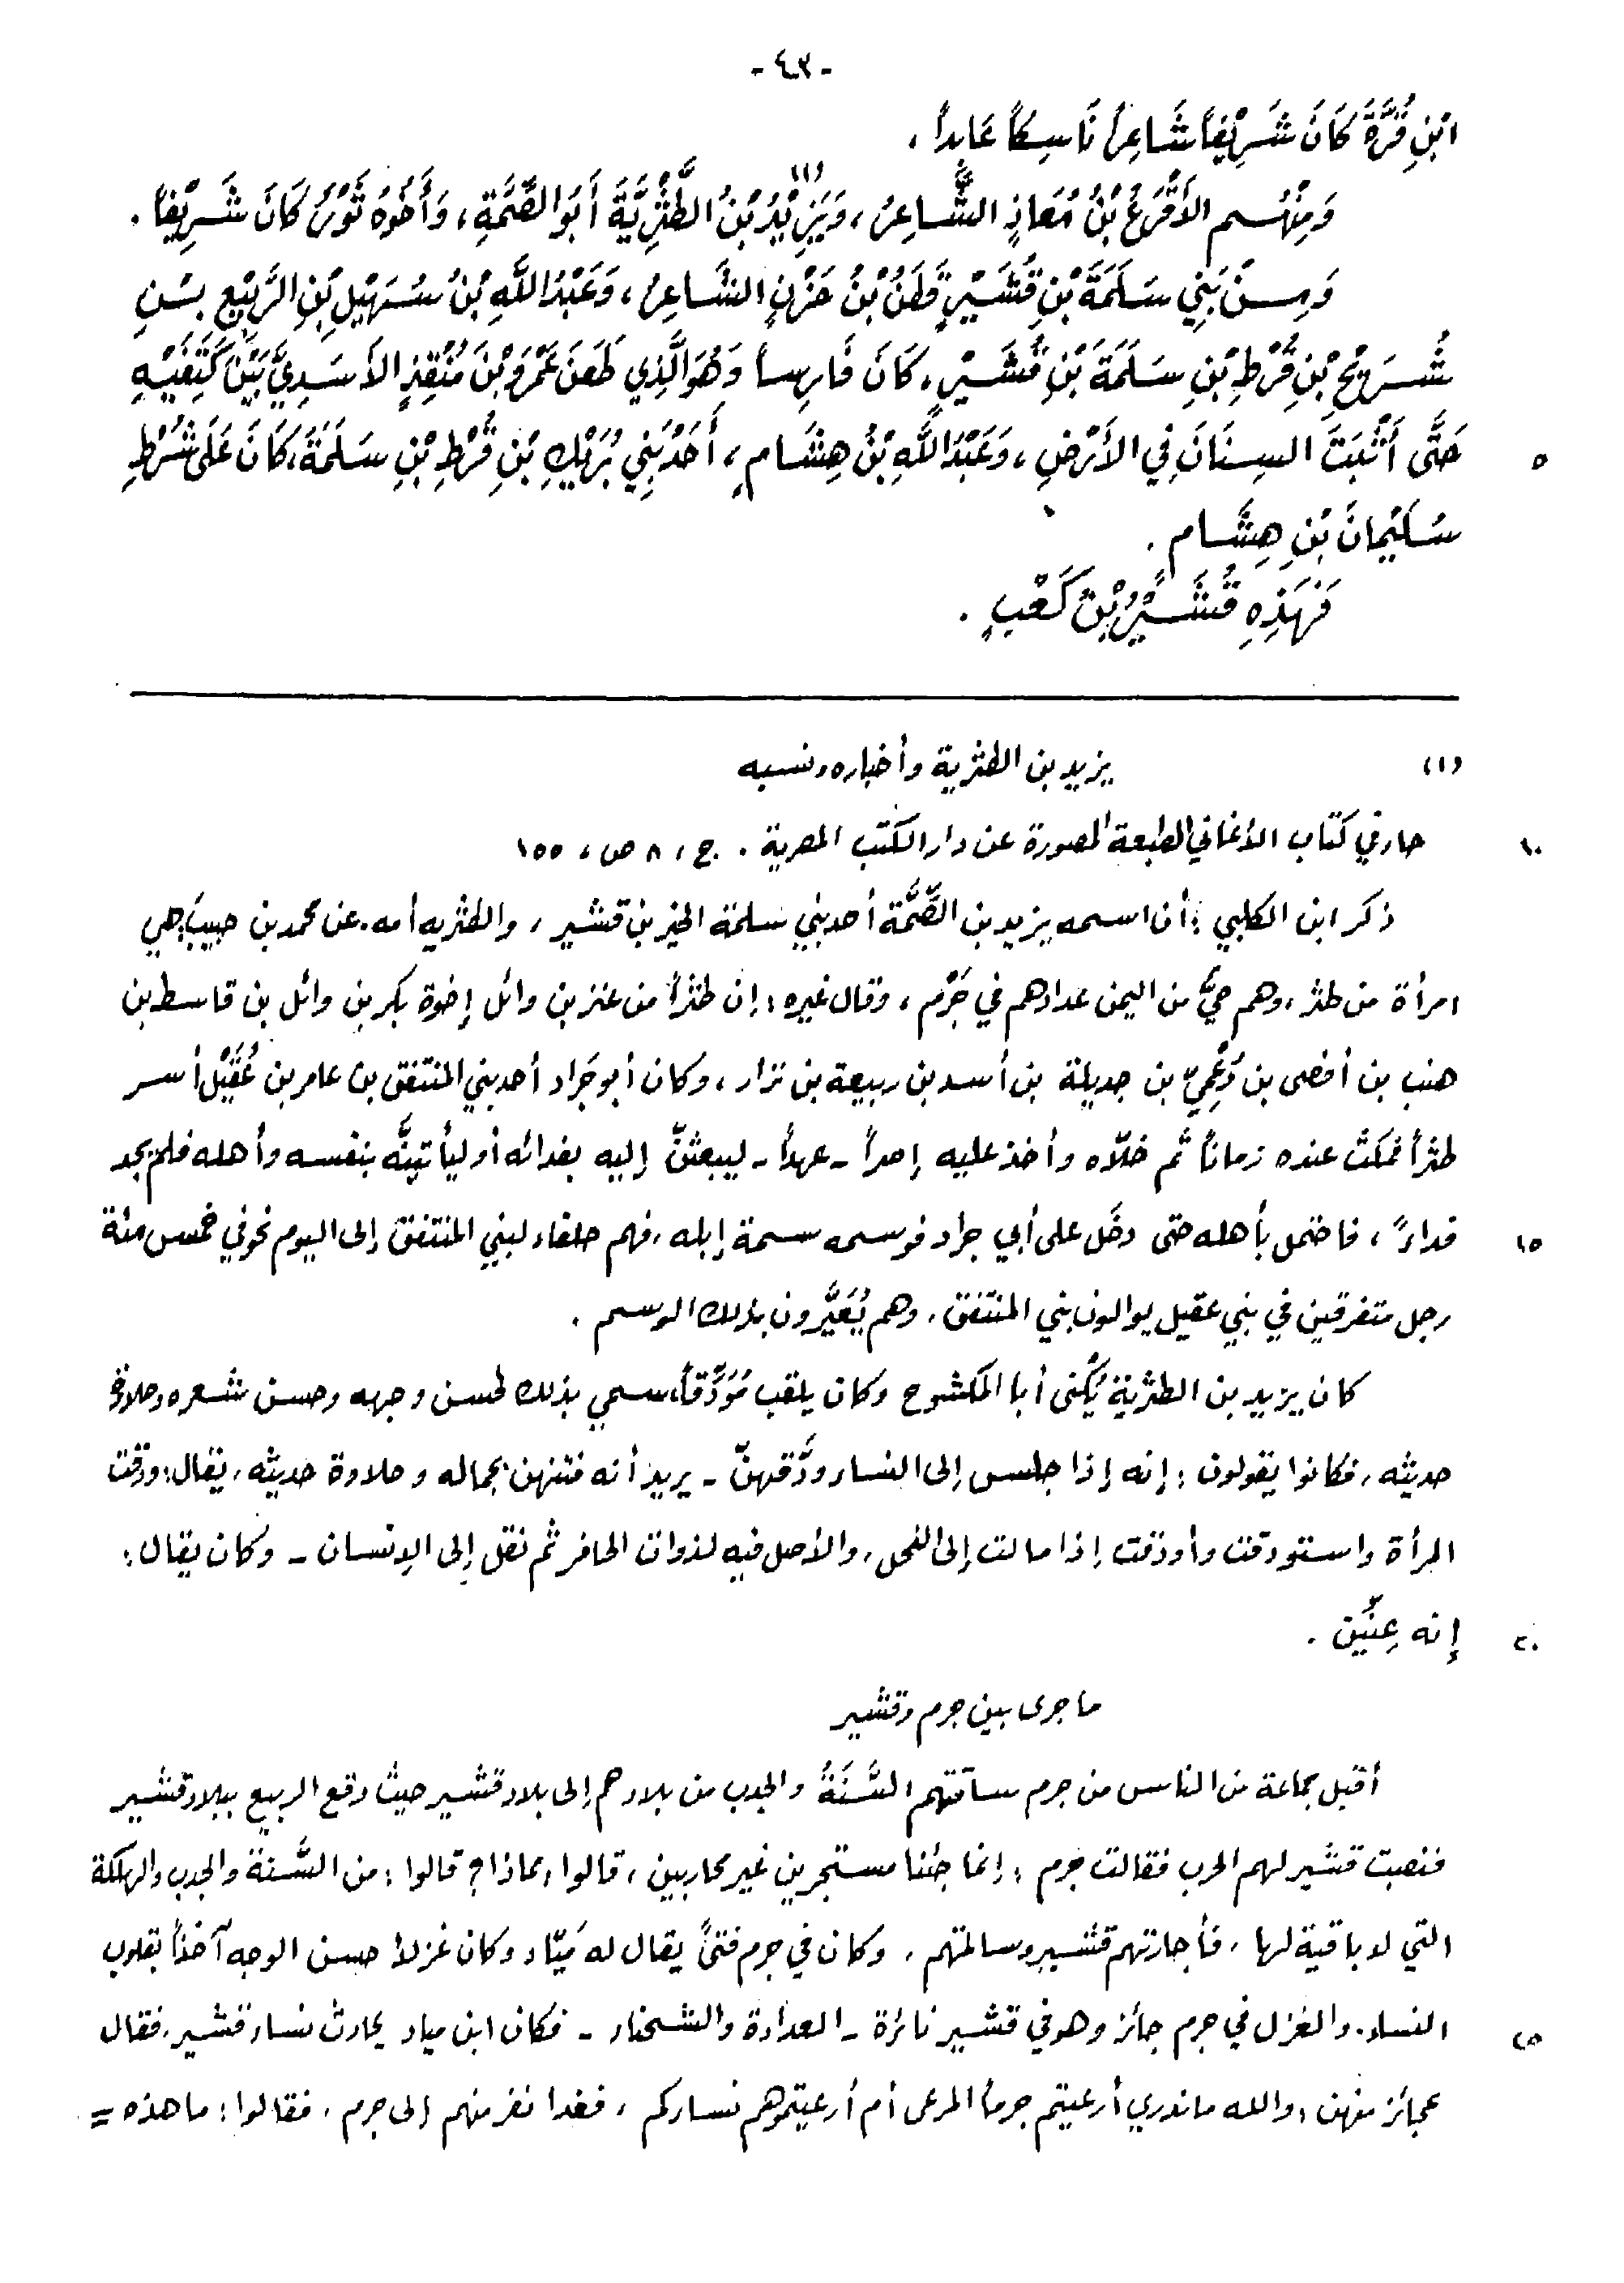 - ٤٣ -
ابْنِ قُرَّةَ كَانَ شَرِيْفاً شَاعِراً نَاسِكاً عَابِداً .
وَمِنْهُم الأَقْرَعُ بْنُ مُعَاذٍ الشَّاعِرُ ، وَيَزِيْدُ بْنُ الطَّثْرِيَّةَ (١) أَبُو الصِّمَّةِ ، وَأَخُوهُ ثَوْرٌ كَانَ شَرِيْفاً .
وَمِنْ بَنِي سَلَمَةَ بْنِ قُشَيْرٍ قَطَنُ بْنُ حَزْنٍ الشَّاعِرُ ، وَعَبْدُ اللَّهِ بْنُ سُهَيْلِ بْنِ الرَّبِيْعِ بْنِ
شُرَيْحِ بْنِ قُرْطِ بْنِ سَلَمَةَ بْنِ قُشَيْرٍ ، كَانَ فَارِساً وَهُوَ الَّذِي طَعَنَ عَمْرَو بْنَ مُنْقِذٍ الأَسَدِيَّ بَيْنَ كَتِفَيْهِ
حَتَّى أَثْبَتَ السِنَانَ فِي الأَرْضِ ، وَعَبْدُ اللَّهِ بْنُ هِشَامٍ ، أَحَدُ بَنِي بُرَيْكِ بْنِ قُرْطِ بْنِ سَلَمَةَ ، كَانَ عَلَى شُرَطِ ٥
سُلَيْمَانَ بْنِ هِشَام .
فَهَذِهِ قُشَيْرُ بْنُ كَعْبٍ .
(١) يزيد بن الطثرية وأخباره ونسبه
جاء في كتاب الأغاني الطبعة المصورة عن دار الكتب المصرية . ج ، ٨ ص ، ١٥٥ ١٠
ذكر ابن الكلبي : أن اسمه يزيد بن الصِّمَّة أحد بني سلمة الخير بن قشير ، والطثريه أمه . عن محمد بن حبيب هي
امرأة من طثر ، وهم حيٌّ من اليمن عدادهم في جَرْم ، وقال غيره : إن طثراً من عنز بن وائل إخوة بكر بن وائل بن قاسط بن
هنب بن أفصى بن دُعْمِيّ بن جديلة بن أسد بن ربيعة بن نزار ، وكان أبو جَراد أحد بني المنتفق بن عامر بن عُقَيْل أسر
طثراً فمكث عنده زماناً ثم خلّاه وأخذ عليه إصراً - عهداً - ليبعثنّ إليه بفدائه أو ليأتينَّه بنفسه وأهله فلم يجد
فداءً ، فاحتمل بأهله حتى دخل على أبي جراد فوسمه سمة إبله ، فهم حلفاء لبني المنتفق إلى اليوم نحو في خمس مئة ١٥
رجل متفرقين في بني عقيل يوالون بني المنتفق ، وهم يُعَيَّرون بذلك الوسم .
كان يزيد بن الطثريَّة يُكْنى أبا المكشوح وكان يلقب مُوَدِّقاً، سمي بذلك لحسن وجهه وحسن شعره وحلاوة
حديثه ، فكانوا يقولون : إنه إذا جلس إلى النساء ودَّقهنّ - يريد أنه فتنهن بجماله وحلاوة حديثه ، يقال : ودقت
المرأة واستودقت وأودقت إذا مالت إلى الفحل ، والأصل فيه لذوات الحافر ثم نقل إلى الإنسان - وكان يقال :
إنه عِنِّين . ٢٠
ما جرى بين جرم وقشير
أقبل جماعة من الناس من جرم ساقتهم السَّنَةُ والجدب من بلادهم إلى بلاد قشير حيث وقع الربيع ببلاد قشير
فنصبت قشير لهم الحرب فقالت جرم : إنما جئنا مستجيرين غير محاربين ، قالوا : مماذا ؟ قالوا : من السَّنة والجدب والهلكة
التي لا باقية لها ، فأجارتهم قشير وسالمتهم ، وكان في جرم فتىً يقال له مَيّاد وكان غزلاً حسن الوجه آخذاً بقلوب
النساء . والغزل في جرم جائز وهو في قشير نائرة - العداوة والشحناء - فكان ابن مياد يحادث نساء قشير ، فقال ٢٥
عجائز منهن : والله ما ندري أرعيتم جرماً المرعى أم أرعيتموهم نساءكم ، فغدا نفر منهم إلى جرم ، فقالوا : ما هذه =